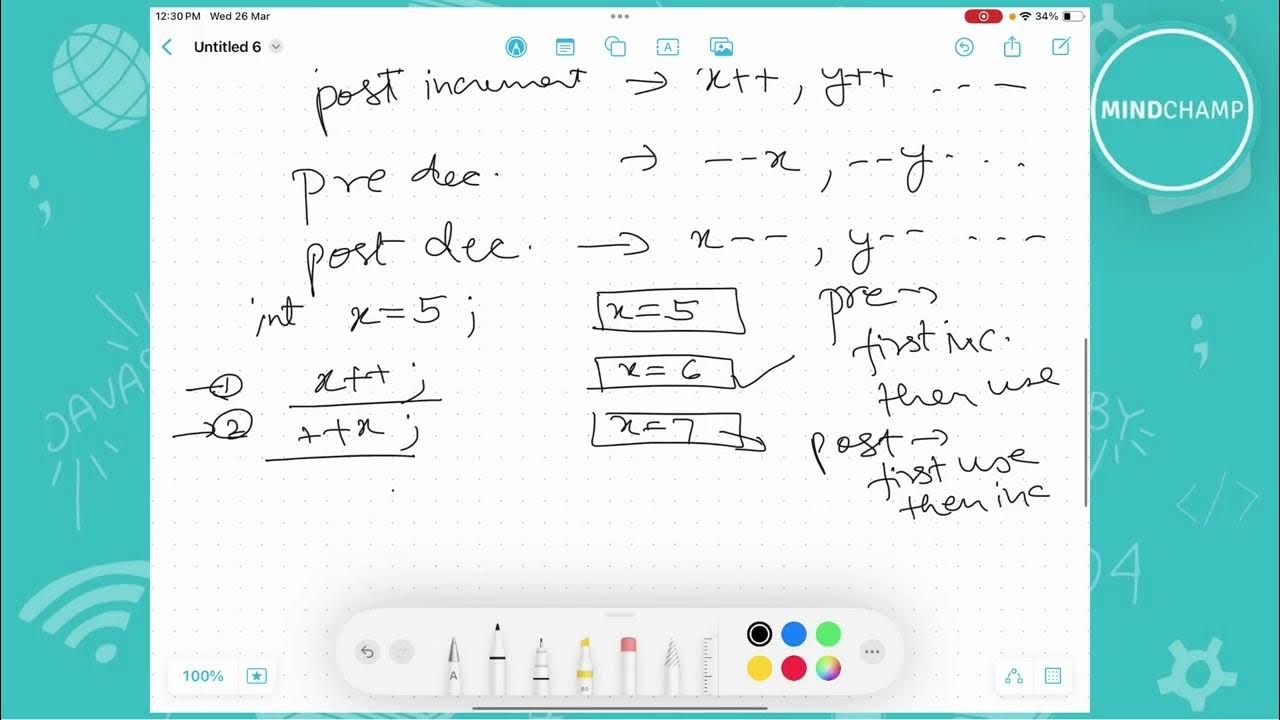 12:30 PM Wed 26 Mar
34%
Untitled 6
MINDCHAMP
post increment → x++, y++ ---
pre dec. → --x, --y...
post dec. → x--, y-- ---
int x=5; x=5
→① x++; x=6 ✓
→② ++x; x=7
pre→
first inc.
then use
post→
first use
then inc
;
JAVAS
BY
</>
04
A
80
100%